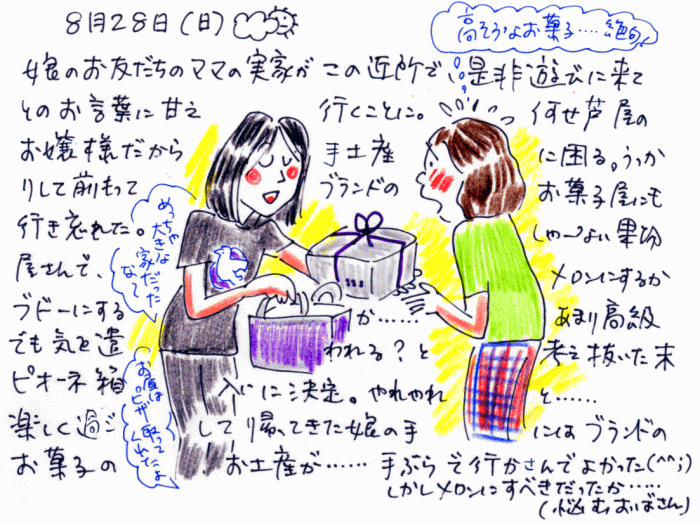 8月28日(日)
高そうなお菓子……絶句
娘のお友だちのママの実家がこの近所で、是非遊びに来て
とのお言葉に甘え 行くことに。何せ芦屋の
お嬢様だから 手土産 に困る。うっか
りして前もって ブランドの お菓子屋にも
行き忘れた。 しゃ〜ない果物
屋さんで、 メロンにするか
ブドーにする か…… あまり高級
でも気を遣 われる?と 考え抜いた末
ピオーネ箱 入りに決定。やれやれ と……
楽しく過ご して帰ってきた娘の手 にはブランドの
お菓子の お土産が…… 手ぶらで行かさんでよかった(^^;)
しかしメロンにすべきだったか……
(悩むおばさん)
めっちゃ
大きな
家だった
な〜
お昼は
ピザ取って
くれてたよ